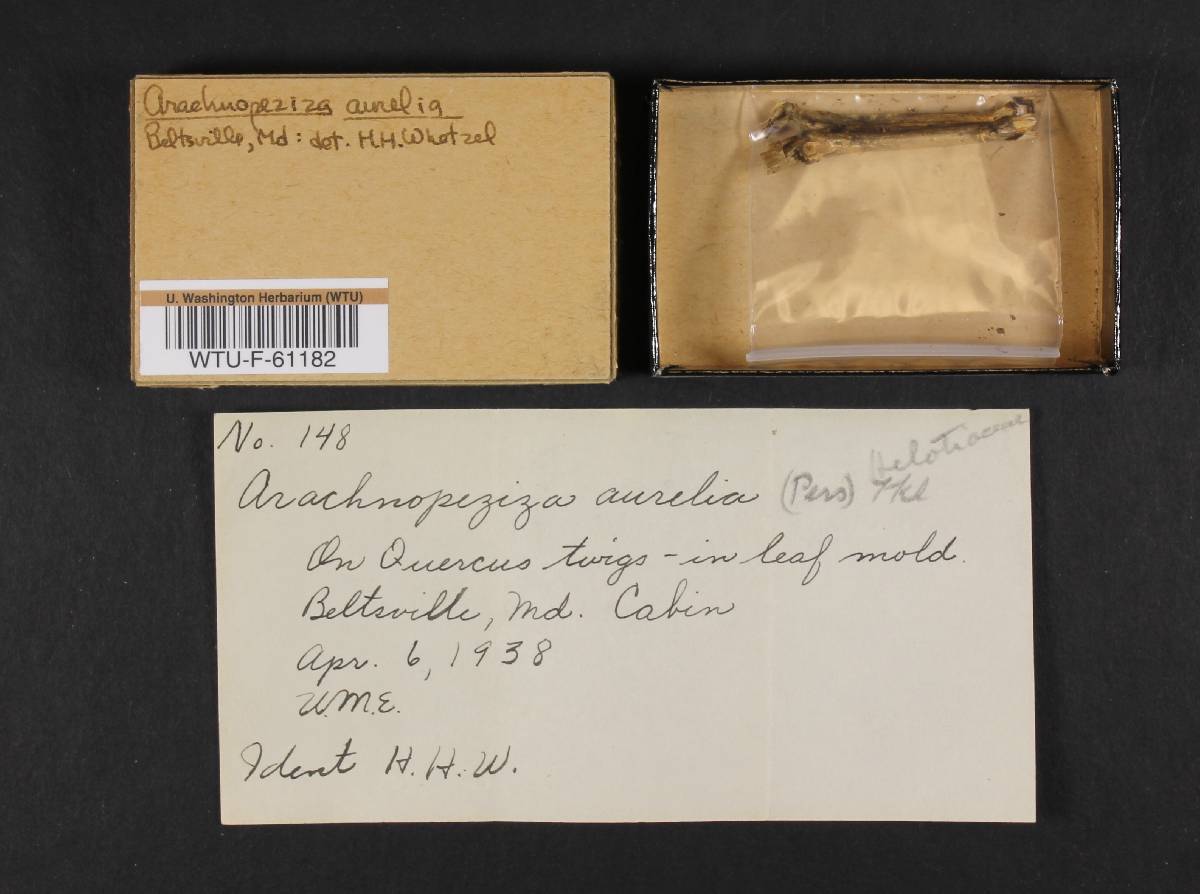 Arachnopeziza aurelia
Beltsville, Md: det. H.H. Whetzel
U. Washington Herbarium (WTU)
WTU-F-61182
No. 148
Helotiaceae
Arachnopeziza aurelia (Pers) Fkl
On Quercus twigs - in leaf mold.
Beltsville, Md. Cabin
Apr. 6, 1938
W.M.E.
Ident H.H.W.